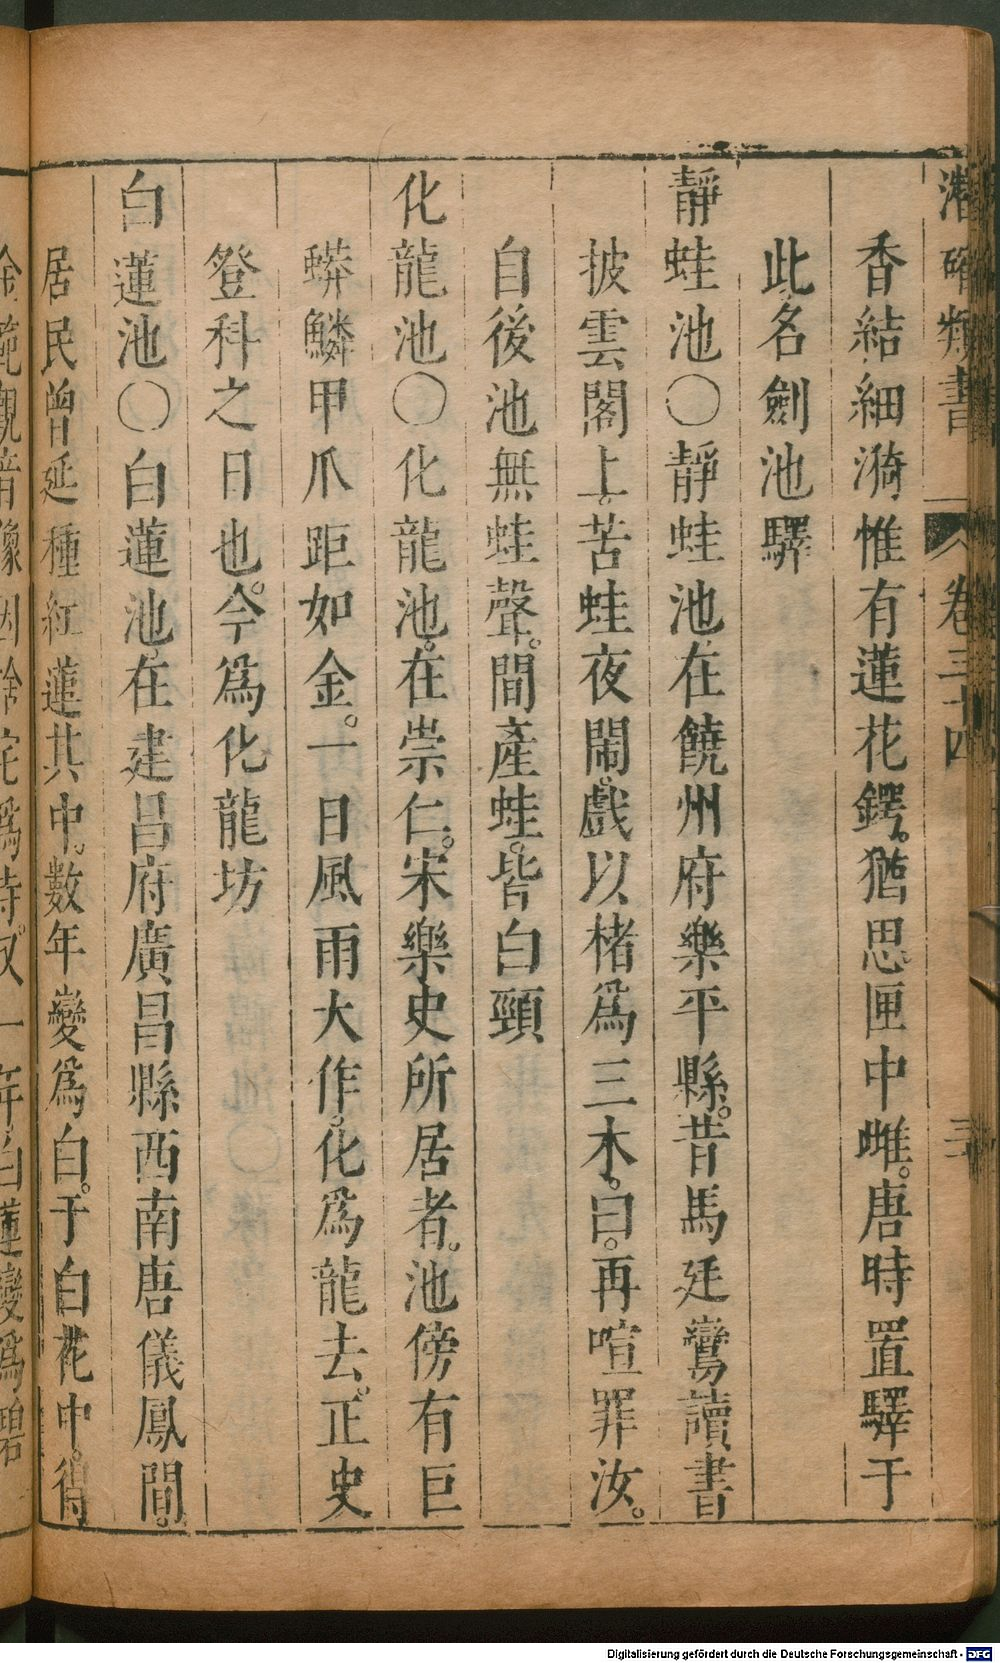 潛確類書 卷三十四 三
香結細漪惟有蓮花鍔。猶思匣中雌。唐時置驛于
此名劍池驛
靜蛙池〇靜蛙池在饒州府樂平縣。昔馬廷鸞讀書
披雲閣上。苦蛙夜鬧。戲以楮爲三木。曰。再喧罪汝。
自後池無蛙聲。間產蛙。皆白頸
化龍池〇化龍池。在崇仁。宋樂史所居者。池傍有巨
蟒鱗甲爪距如金。一日風雨大作。化爲龍去。正史
登科之日也。今爲化龍坊
白蓮池〇白蓮池在建昌府廣昌縣西南唐儀鳳間。
居民曾延種紅蓮其中。數年變爲白。于白花中。得
觀音像因捨宅爲寺。又一年白蓮變爲碧
Digitalisierung gefördert durch die Deutsche Forschungsgemeinschaft - DFG